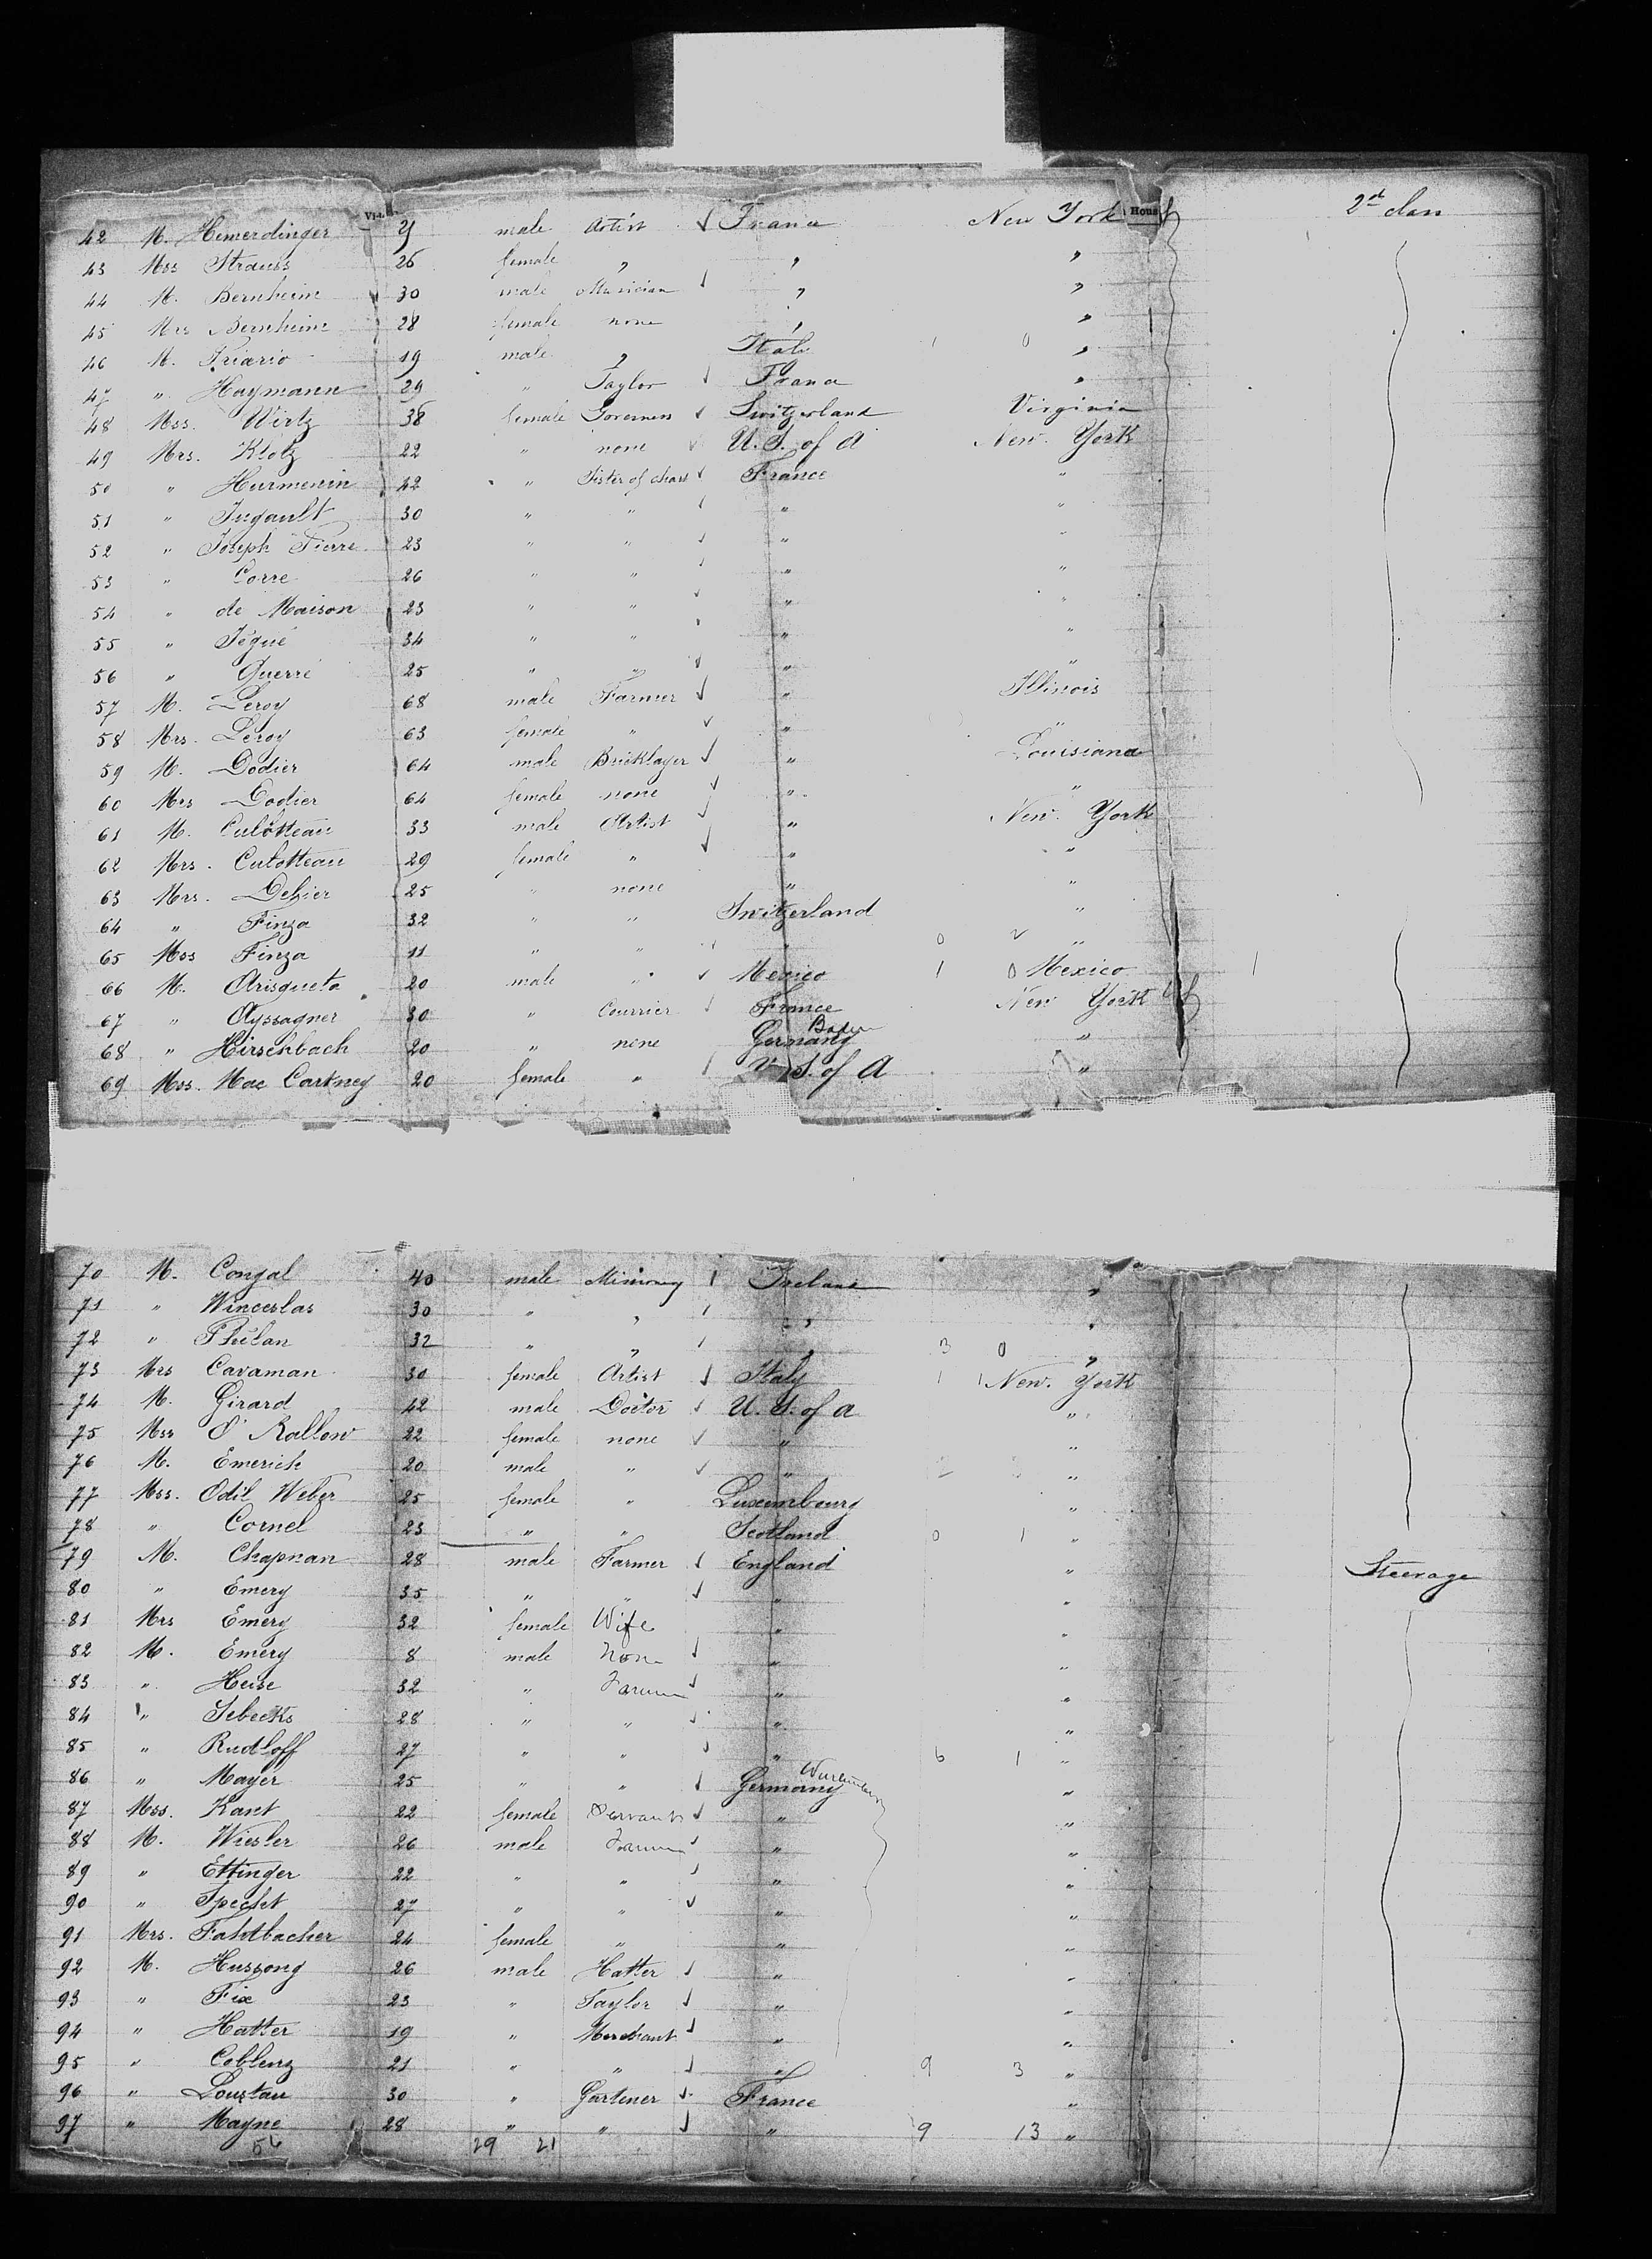 2nd clan
42 M. Himerdinger male Artist France New York
43 Mss Strauss 26 female " " "
44 M. Bernheim 30 male Musician " "
45 Mrs Bernheim 28 female none " "
46 M. Friario 19 male " Italy 1 0 "
47 " Haymann 29 " Taylor France "
48 Mss. Wirtz 38 female Governess Switzerland Virginia
49 Mrs. Klotz 22 " none U.S. of A New York
50 " Hurmenin 42 " Sister of charit France "
51 " Jugault 30 " " " "
52 " Joseph Pierre 23 " " " "
53 " Corre 26 " " " "
54 " de Maison 23 " " " "
55 " Jégué 34 " " " "
56 " Querré 25 " " " "
57 M. Leroy 68 male Farmer " Illinois
58 Mrs. Leroy 63 female " " "
59 M. Dodier 64 male Bricklayer " Louisiana
60 Mrs Dodier 64 female none " "
61 M. Culotteau 33 male Artist " New York
62 Mrs. Culotteau 29 female " " "
63 Mrs. 25 " none " "
64 " Finza 32 " " Switzerland "
65 Mss Finza 11 " " " 0 2 "
66 M. Arisgueta 20 male " Mexico 1 0 Mexico 1
67 " Ayssagner 30 " Courrier France New York
68 " Hirschbach 20 " none Germany Baden "
69 Mss. Mac Cartney 20 female " U.S. of A "
70 M. Congal 40 male Missionary Ireland "
71 " Winceslas 30 " " " "
72 " Phelan 32 " " " 3 0 "
73 Mrs Cavaman 30 female Artist Italy 1 1 New York
74 M. Girard 42 male Doctor U.S. of A "
75 Mss O'Rallow 22 female none " "
76 M. Emerich 20 male " " "
77 Mss. Odil Weber 25 female " Luxembourg "
78 " Cornel 23 " " Scotland 0 1 "
79 M. Chapnan 28 male Farmer England " Steerage
80 " Emery 35 " " " "
81 Mrs Emery 32 female Wife " "
82 M. Emery 8 male None " "
83 " Heise 32 " Farmer " "
84 " Sebecks 28 " " " "
85 " Rudloff 27 " " " 6 1 "
86 " Mayer 25 " " Germany Wurtemberg "
87 Mss. Kant 22 female Servant " "
88 M. Wiesler 26 male Farmer " "
89 " Ettinger 22 " " " "
90 " Specht 27 " " " "
91 Mrs. Fahtbacher 24 female " " "
92 M. Hussong 26 male Hatter " "
93 " Fix 23 " Taylor " "
94 " Hatter 19 " Merchant " "
95 " Coblenz 21 " " " 9 3 "
96 " Loustau 30 " Gartener France "
97 " Mayne 28 " " " 9 13 "
56 29 21